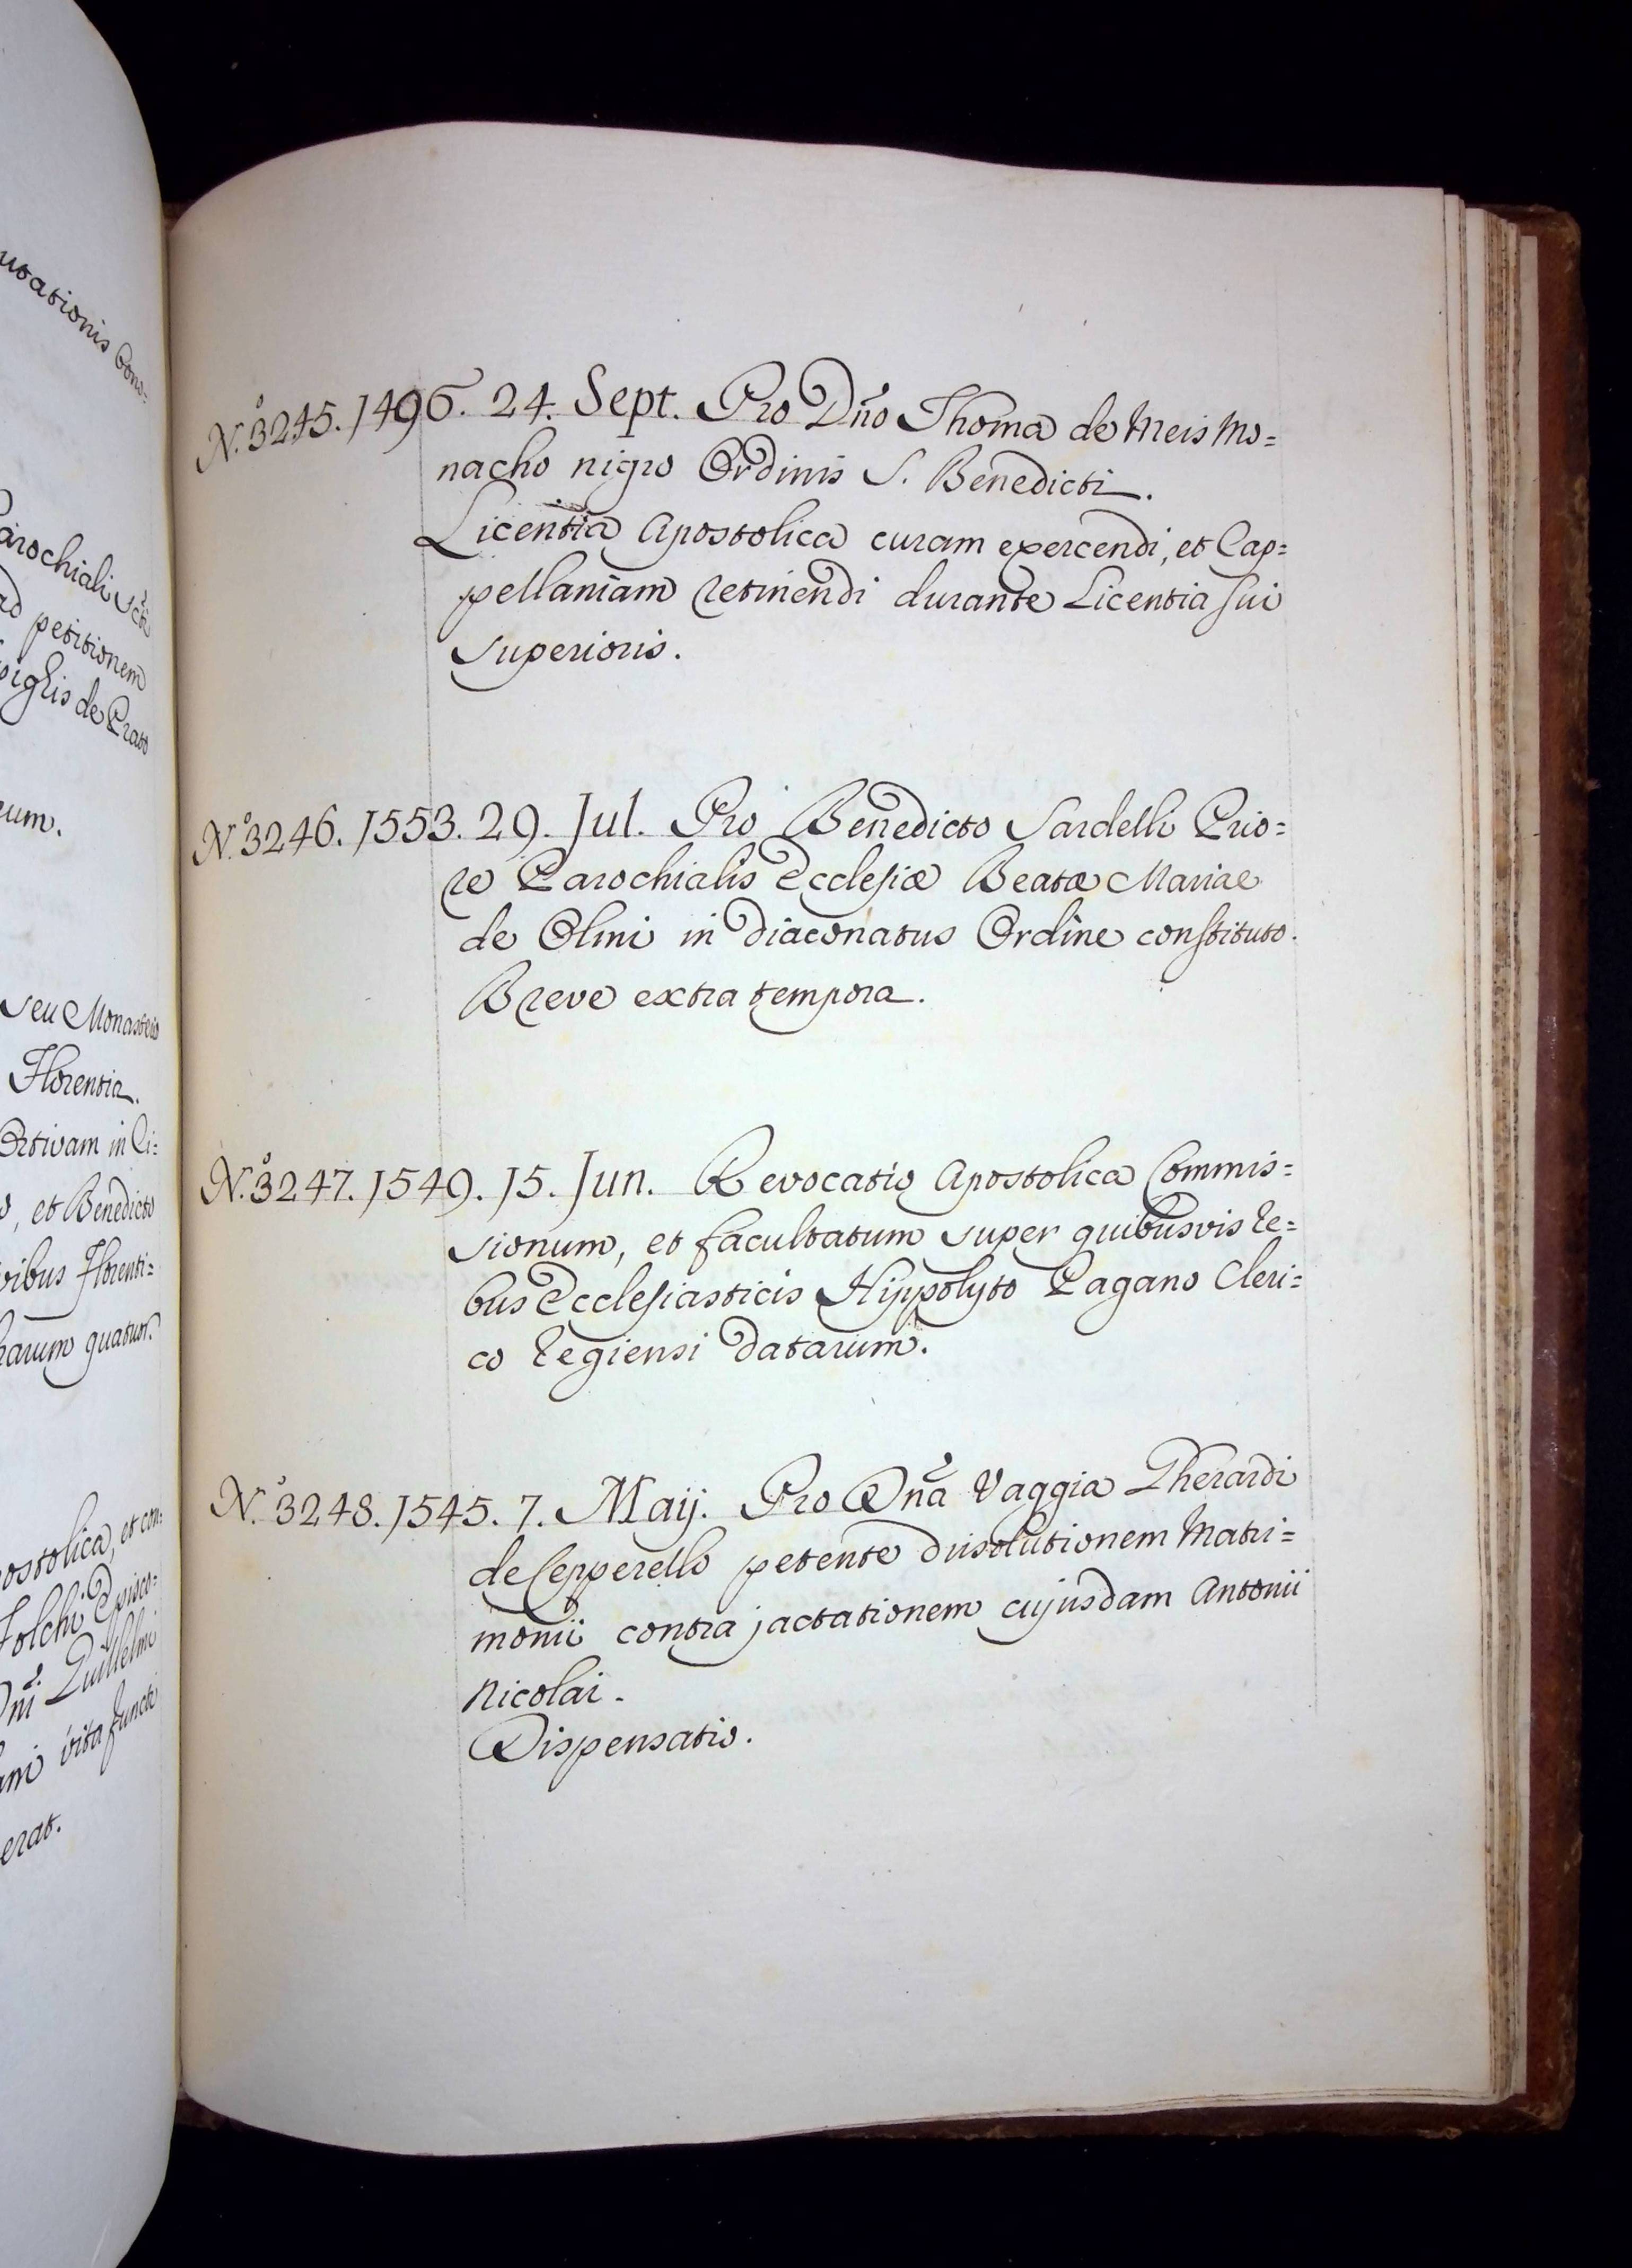 utationis Cons=
arochiali Scti
ad petitionem
piglis de Prato
eum.
seu Monasterio
Florentia.
Ortivam in Ci=
o, et Benedicto
vibus Florenti=
harum quatuor.
ostolica, et con=
Folchi Episco=
Dñi Guillelmi
ani vita functi
erat.
N.º 3245. 1496. 24. Sept. Pro Dño Thoma de Meis Mo=
nacho nigro Ordinis S. Benedicti.
Licentia Apostolica curam exercendi, et Cap=
pellaniam retinendi durante Licentia sui
superioris.
N.º 3246. 1553. 29. Jul. Pro Benedicto Sardelli Prio=
re Parochialis Ecclesiæ Beatæ Mariae
de Olmi in diaconatus Ordine constituto.
Breve extra tempora.
N.º 3247. 1549. 15. Jun. Revocatio Apostolica Commis=
sionum, et facultatum super quibusvis re=
bus Ecclesiasticis Hippolyto Pagano Cleri=
co regiensi datarum.
N.º 3248. 1545. 7. Maij. Pro Dña Vaggia Gherardi
de Cepperello petente dissolutionem Matri=
monii contra jactationem cujusdam Antonii
Nicolai.
Dispensatio.